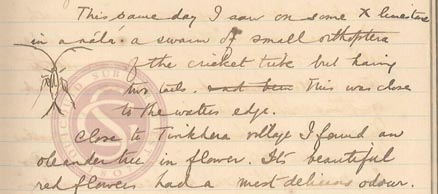 This same day I saw on some X limestone
in a nála a swarm of small orthoptera
of the cricket tribe but having
two tails. This was close
to the waters edge.
Close to Tinkhera village I found an
oleander tree in flower. Its beautiful
red flowers had a most delicious odour.